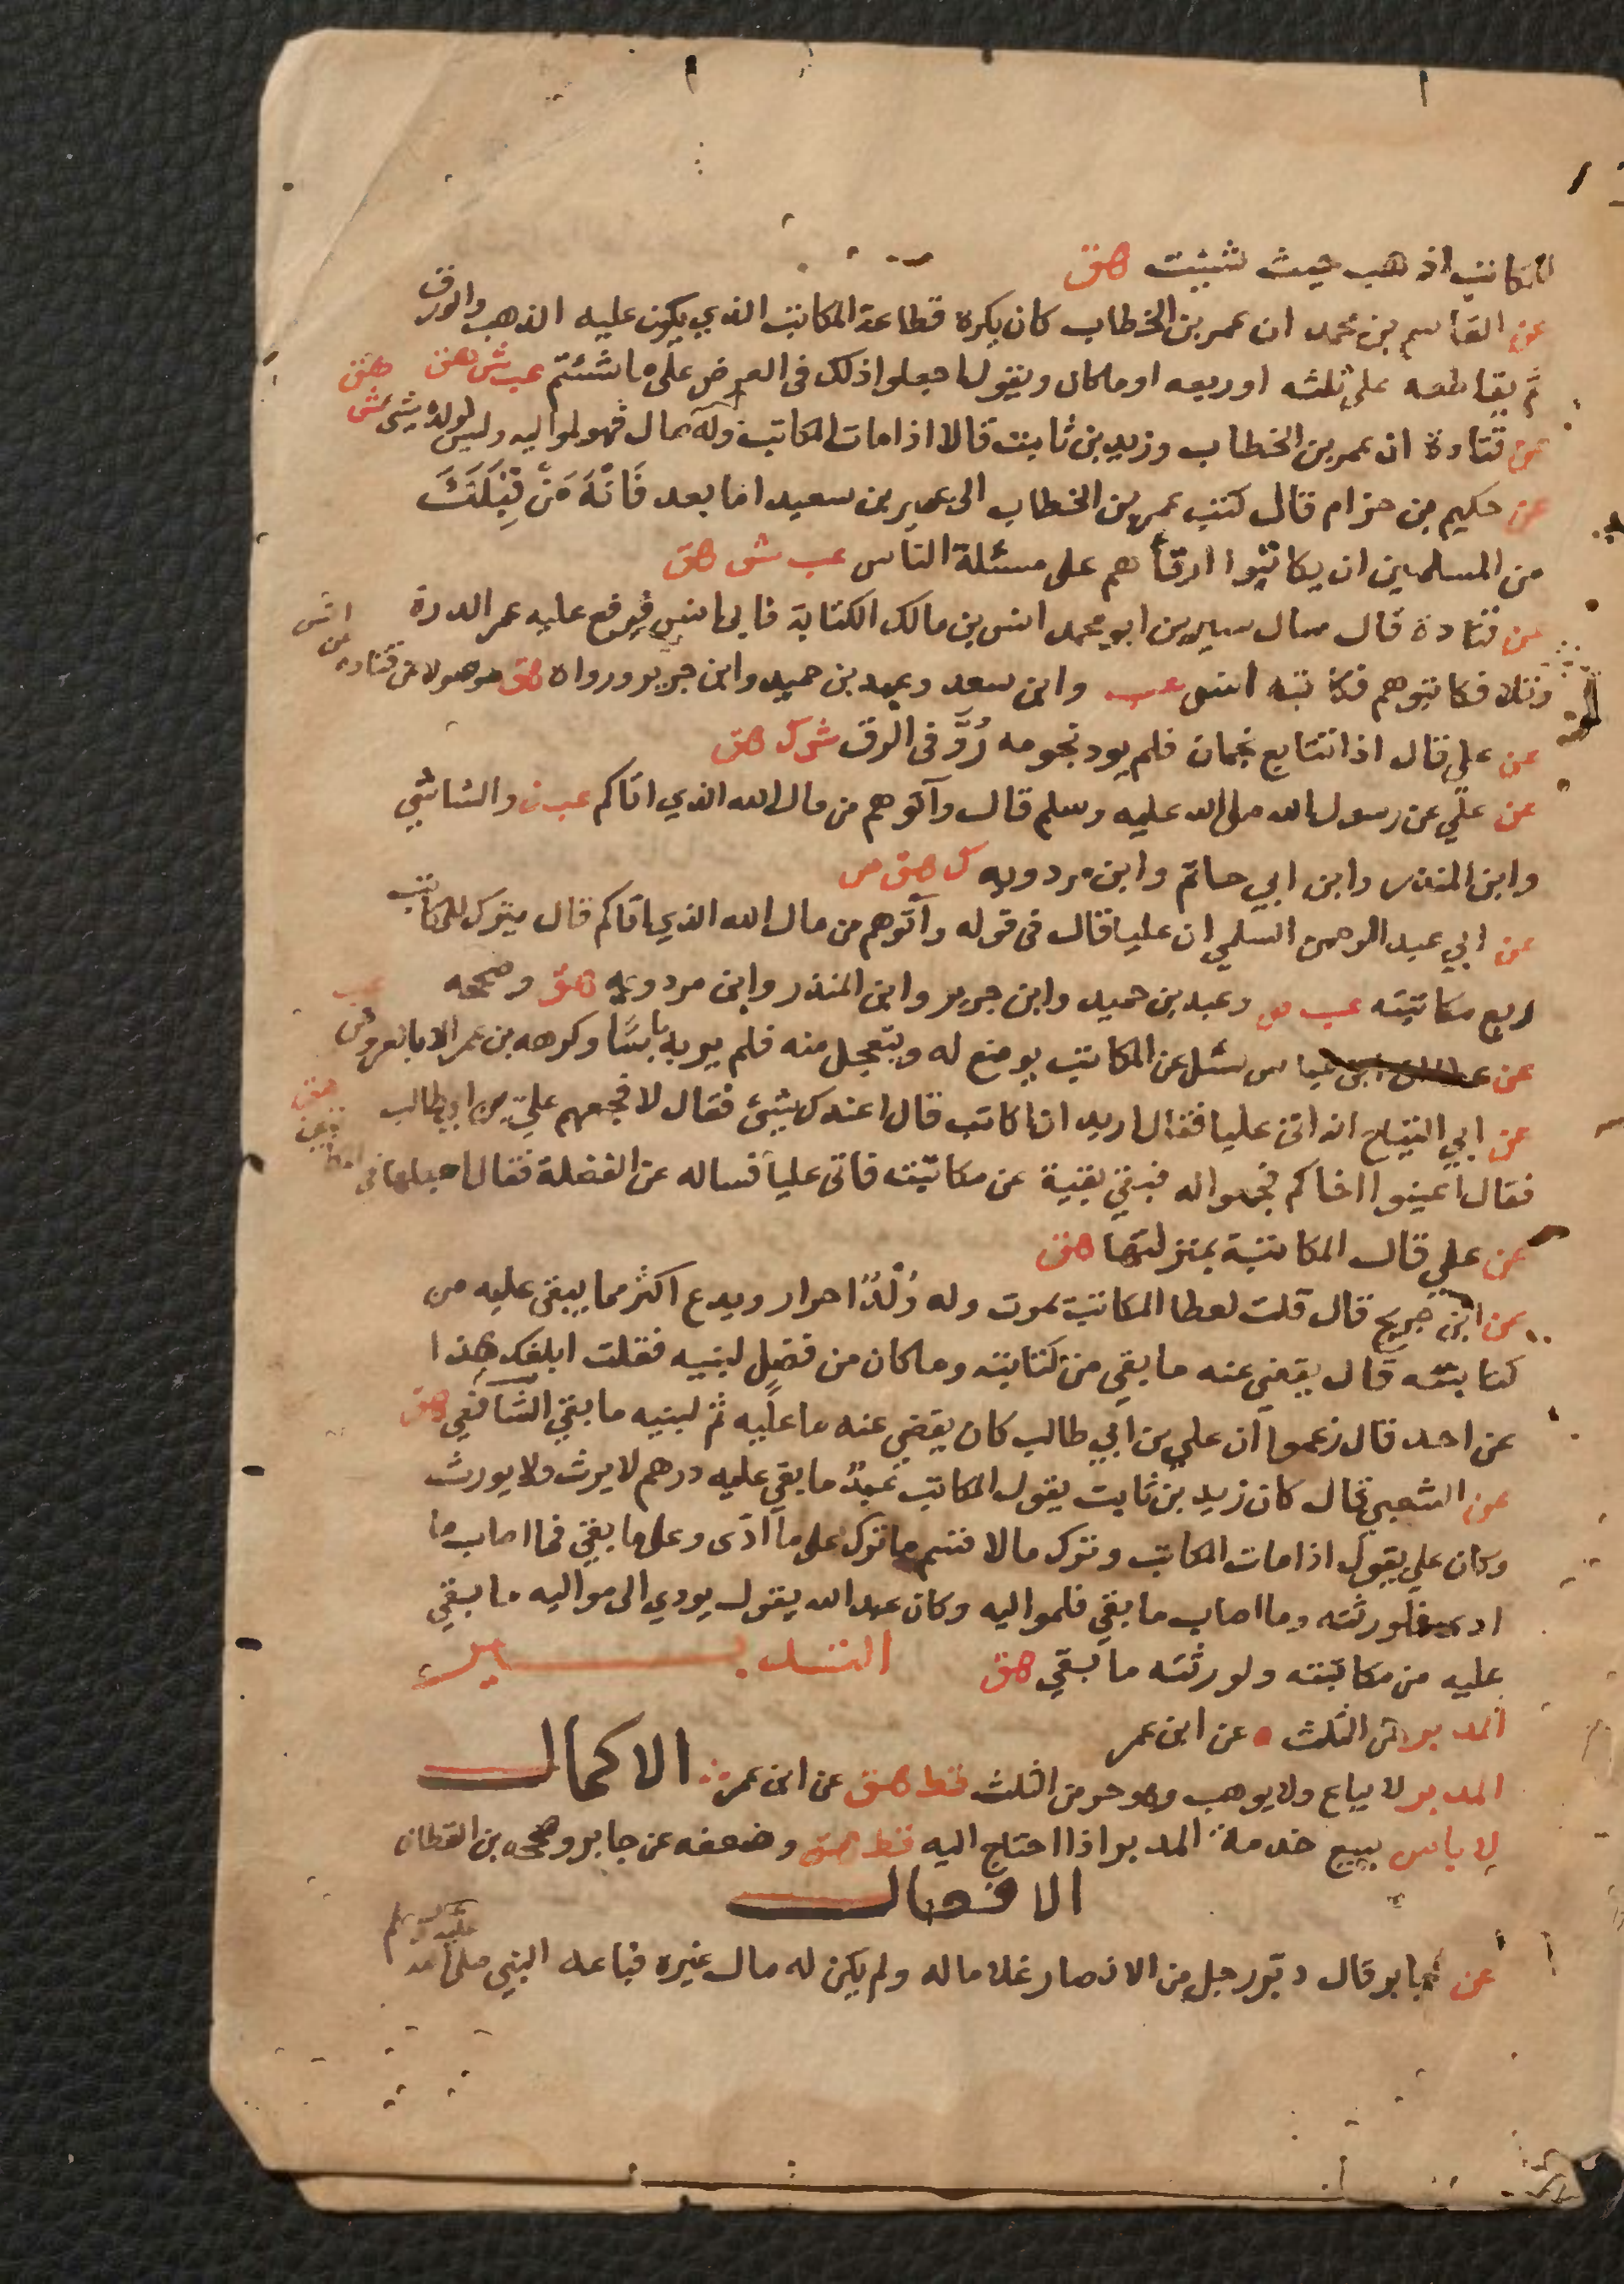 للمكاتب اذهب حيث شيئت هق
عن القاسم بن محمد ان عمر بن الخطاب كان يكره قطاعة المكاتب الذي يكون عليه الذهب والورق
ثم يقاطعه على ثلثه او ربعه او ما كان ويقول اجعلوا ذلك في العرض على ما شئتم عب ش هق
عن قتادة ان عمر بن الخطاب وزيد بن ثابت قالا اذا مات المكاتب وله مال فهو لمواليه وليس لولده شيئ ش هق
عن حكيم بن حزام قال كتب عمر بن الخطاب الى عمير بن سعيد اما بعد فانه من قبلك
من المسلمين ان يكاتبوا ارقاءهم على مسئلة الناس عب ش هق
عن قتادة قال سال سيرين ابو محمد انس بن مالك الكتابة فابى انس فرفع عليه عمر الدرة
وتلا فكاتبوهم فكاتبه انس عب وابن سعد وعبد بن حميد وابن جرير ورواه هق موصولا عن قتاده عن انس
عن علي قال اذا تتابع نجمان فلم يود نجومه رد في الرق ش ك هق
عن علي عن رسول الله صلى الله عليه وسلم قال وآتوهم من مال الله الذي اتاكم عب ن والشاشي
وابن المنذر وابن ابي حاتم وابن مردويه ك هق ص
عن ابي عبد الرحمن السلمي ان عليا قال في قوله وآتوهم من مال الله الذي اتاكم قال يترك للمكاتب
ربع مكاتبته عب ص وعبد بن حميد وابن جرير وابن المنذر وابن مردويه هق وصححه
عن ابن عباس سئل عن المكاتب يوضع له ويتعجل منه فلم ير به باسا وكرهه بن عمر الا بالعروض عب
عن ابي التياح انه اتى عليا فقال اريد ان اكاتب قال اعندك شيئ فقال لا فجمعهم علي بن ابي طالب
فقال اعينوا اخاكم فجمعوا له فبقي بقية عن مكاتبته فاتى عليا فساله عن الفضلة فقال اجعلها في هق
عن علي قال المكاتبة بمنزلتها هق
عن ابن جريج قال قلت لعطا المكاتب يموت وله ولد احرار ويدع اكثر مما بقي عليه من
كتابته قال يقضى عنه ما بقي من كتابته وما كان من فضل لبنيه فقلت ابلغك هذا
عن احد قال زعموا ان علي بن ابي طالب كان يقضي عنه ما عليه ثم لبنيه ما بقي الشافعي هق
عن الشعبي قال كان زيد بن ثابت يقول المكاتب عبد ما بقي عليه درهم لا يرث ولا يورث
وكان علي يقول اذا مات المكاتب وترك مالا قسم ما ترك على ما ادى وعلى ما بقي فما اصاب ما
ادى فلورثته وما اصاب ما بقي فلمواليه وكان عبد الله يقول يودي الى مواليه ما بقي
عليه من مكاتبته ولورثته ما بقي هق التدبير
المدبر من الثلث ه عن ابن عمر
المدبر لا يباع ولا يوهب وهو حر من الثلث قط هق عن ابن عمر الاكمال
لا باس ببيع خدمة المدبر اذا احتاج اليه قط هق وضعفه عن جابر وصححه بن القطان
الافعال
عن جابر قال دبر رجل من الانصار غلاما له ولم يكن له مال غيره فباعه النبي صلى الله عليه وسلم